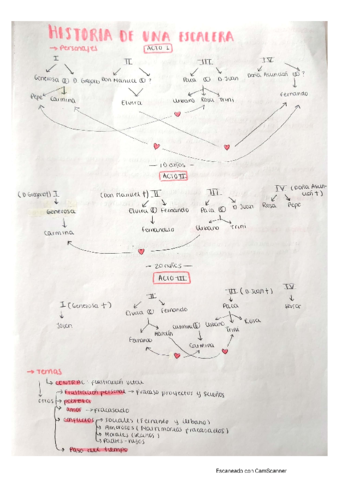 HISTORIA DE UNA ESCALERA
→ Personajes
ACTO I
I II III IV
Generosa D. Gregorio Don Manuel ? Paca D. Juan Doña Asunción ?
Pepe Carmina Elvira Urbano Rosa Trini Fernando
— 10 años —
ACTO II
(D. Gregorio †) I (Don Manuel †) II III IV (Doña Asunción †)
Generosa Elvira Fernando Paca D. Juan Rosa Pepe
Carmina Fernando Urbano Trini
— 20 años —
ACTO III
I (Generosa †) II III (D. Juan †) IV
Joven Elvira Fernando Paca
Fernando Manolín Carmina Urbano Trini Rosa
Carmina
→ Temas
CENTRAL: frustración
otros
Frustración personal → Fracaso proyectos y sueños
pobreza
amor → fracasado
conflictos → sociales (Fernando y Urbano)
Amorosos (Matrimonios fracasados)
Morales
Padres-hijos
Paso del tiempo
Escaneado con CamScanner